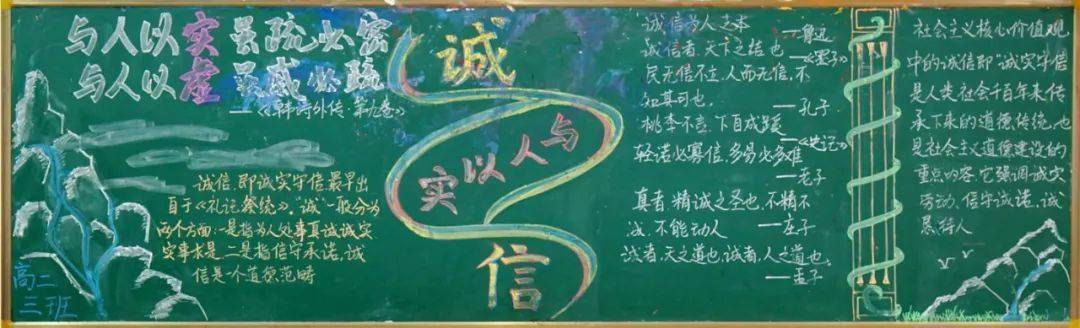 与人以实 虽疏必密
与人以虚 虽戚必疏
——《韩诗外传·第九卷》
诚信，即诚实守信最早出
自于《礼记祭统》。“诚”一般分为
两个方面：一是指为人处事真诚诚实
实事求是，二是指信守承诺，诚
信是个道德范畴
高二
三班
诚
与人以实
信
诚信为人之本
——鲁迅
诚信者，天下之结也
——《墨子》
民无信不立，人而无信，不
知其可也。
——孔子
桃李不言，下自成蹊
——《史记》
轻诺必寡信，多易必多难
——老子
真者，精诚之至也，不精不
诚，不能动人
——庄子
诚者，天之道也，诚者，人之道也。
——孟子
社会主义核心价值观
中的诚信即“诚实守信
是人类社会千百年来传
承下来的道德传统，也
是社会主义道德建设的
重点内容，它强调诚实
劳动、信守诚诺、诚
恳待人